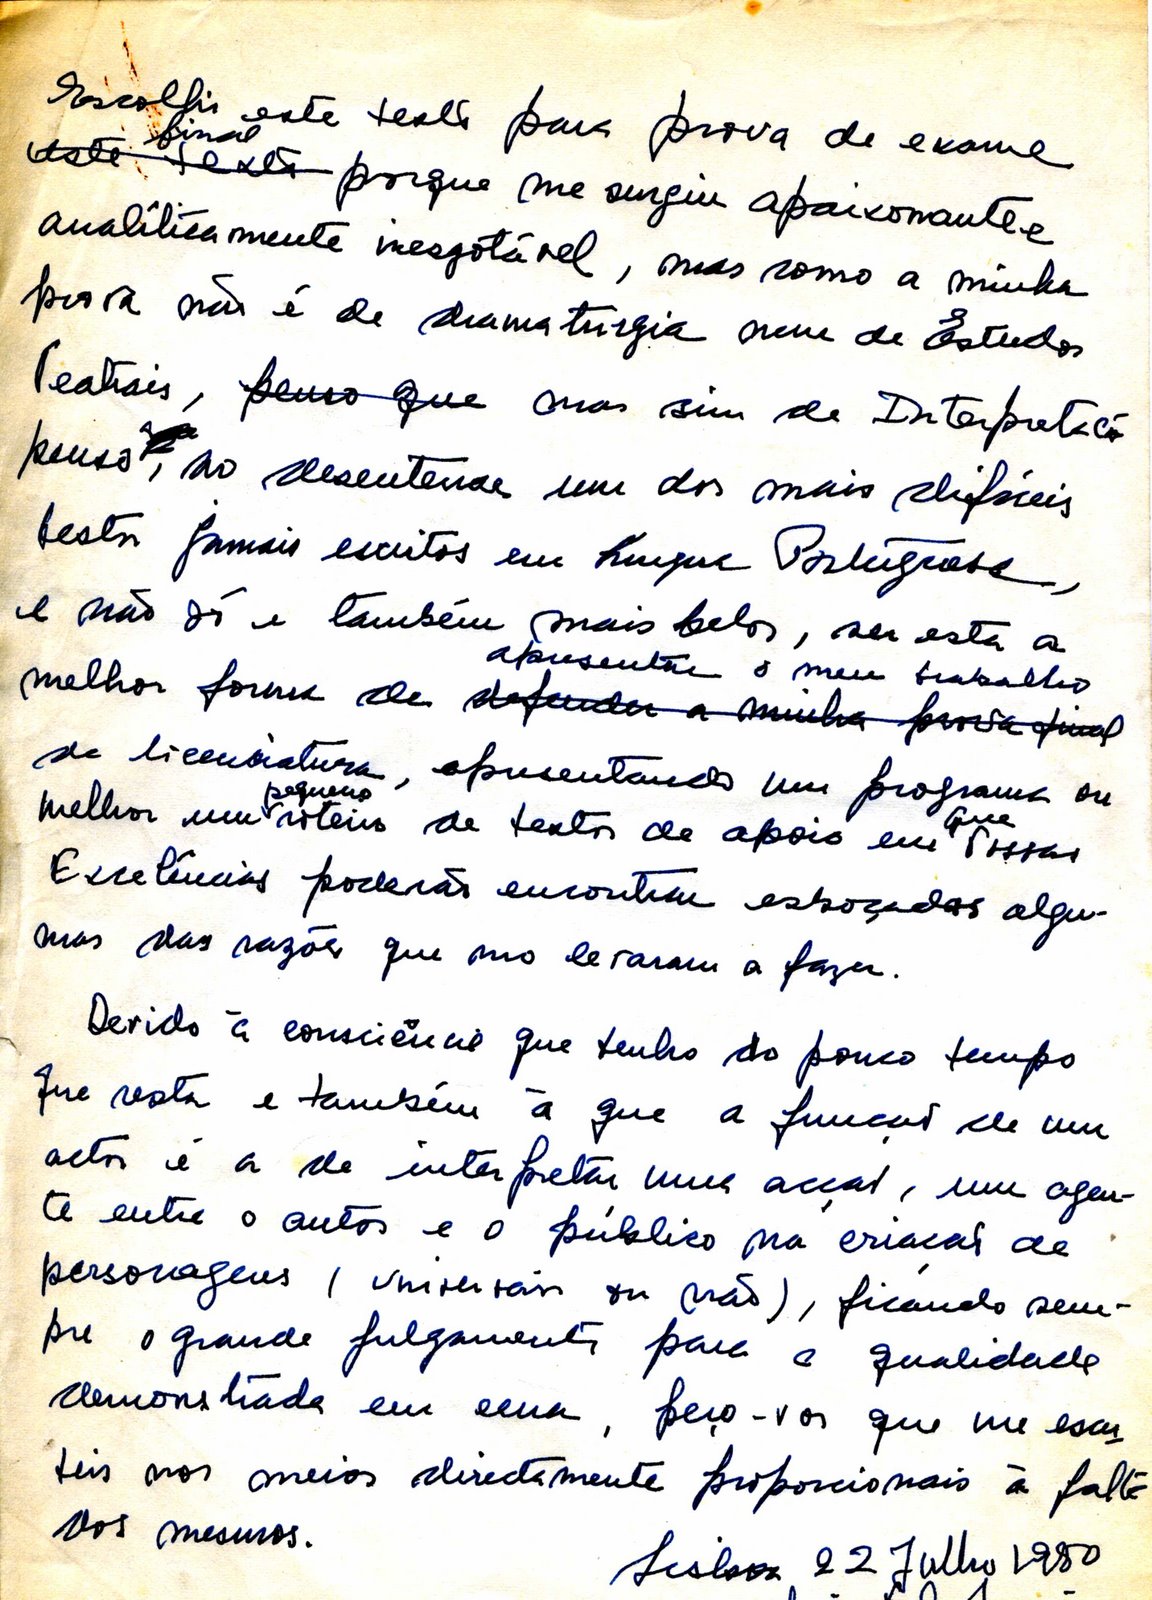 Escolhi este texto para prova de exame
final
este texto porque me surgiu apaixonante e
analiticamente inesgotável, mas como a minha
prova não é de dramaturgia nem de Estudos
Teatrais, penso que mas sim de Interpretação
penso, ao desentender um dos mais difíceis
textos jamais escritos em língua Portuguesa,
e não só e também mais belos, ser esta a
apresentar o meu trabalho
melhor forma de defender a minha prova final
de licenciatura, apresentando um programa ou
pequeno
melhor um roteiro de textos de apoio em que Vossas
Excelências poderão encontrar esboçadas algu-
mas das razões que mo levaram a fazer.
Devido à consciência que tenho do pouco tempo
que resta e também à que a função de um
actor é a de interpretar uma acção, um agen-
te entre o autor e o público na criação de
personagens (universais ou não), ficando sem-
pre o grande julgamento para a qualidade
demonstrada em cena, peço-vos que me
nos meios directamente proporcionais à falta
dos mesmos.
Lisboa 22 Julho 1980